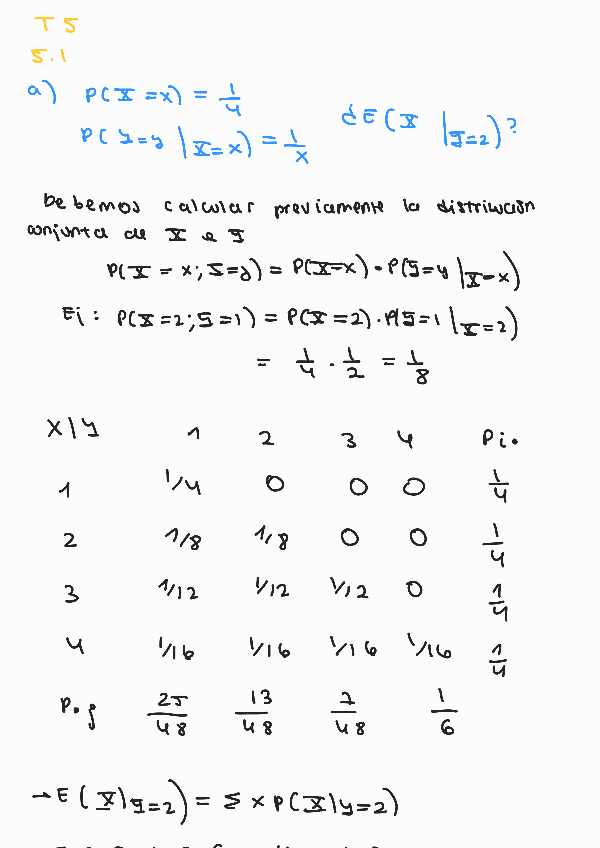 T5
5.1
a) P(X=x) = 1/4
P(Y=y | X=x) = 1/x
¿E(X | Y=2)?
Debemos calcular previamente la distribución
conjunta de X e Y
P(X=x; Y=y) = P(X=x) · P(Y=y | X=x)
Ej: P(X=2; Y=1) = P(X=2) · P(Y=1 | X=2)
= 1/4 · 1/2 = 1/8
X|Y 1 2 3 4 Pi.
1 1/4 0 0 0 1/4
2 1/8 1/8 0 0 1/4
3 1/12 1/12 1/12 0 1/4
4 1/16 1/16 1/16 1/16 1/4
P.j 25/48 13/48 7/48 1/6
→ E(X|Y=2) = Σ x P(X|y=2)